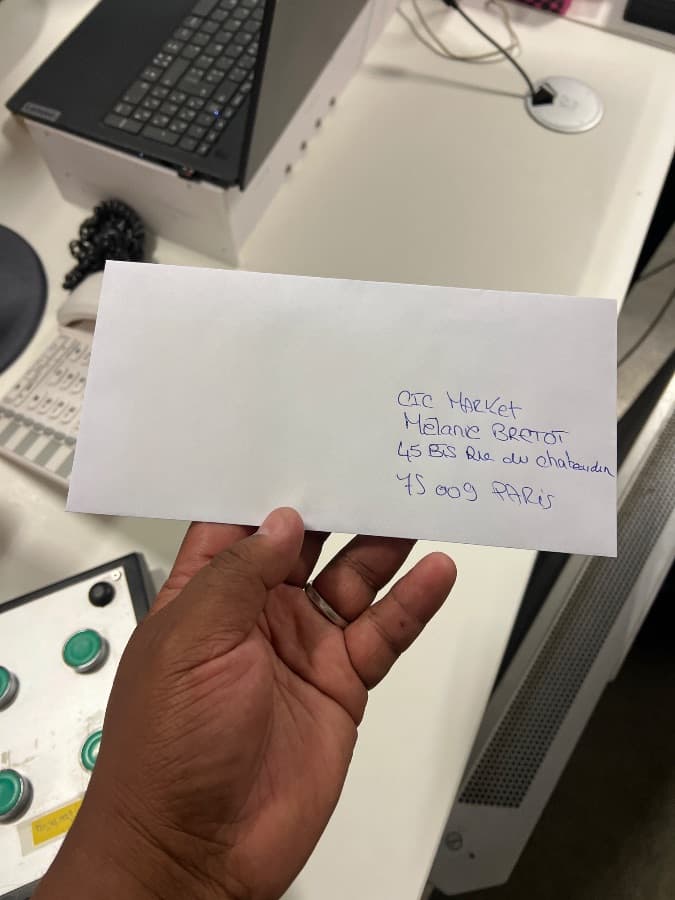 Lenovo
CIC MARKET
Mélanie BRETOT
45 BIS Rue du chateaudun
75 009 PARIS